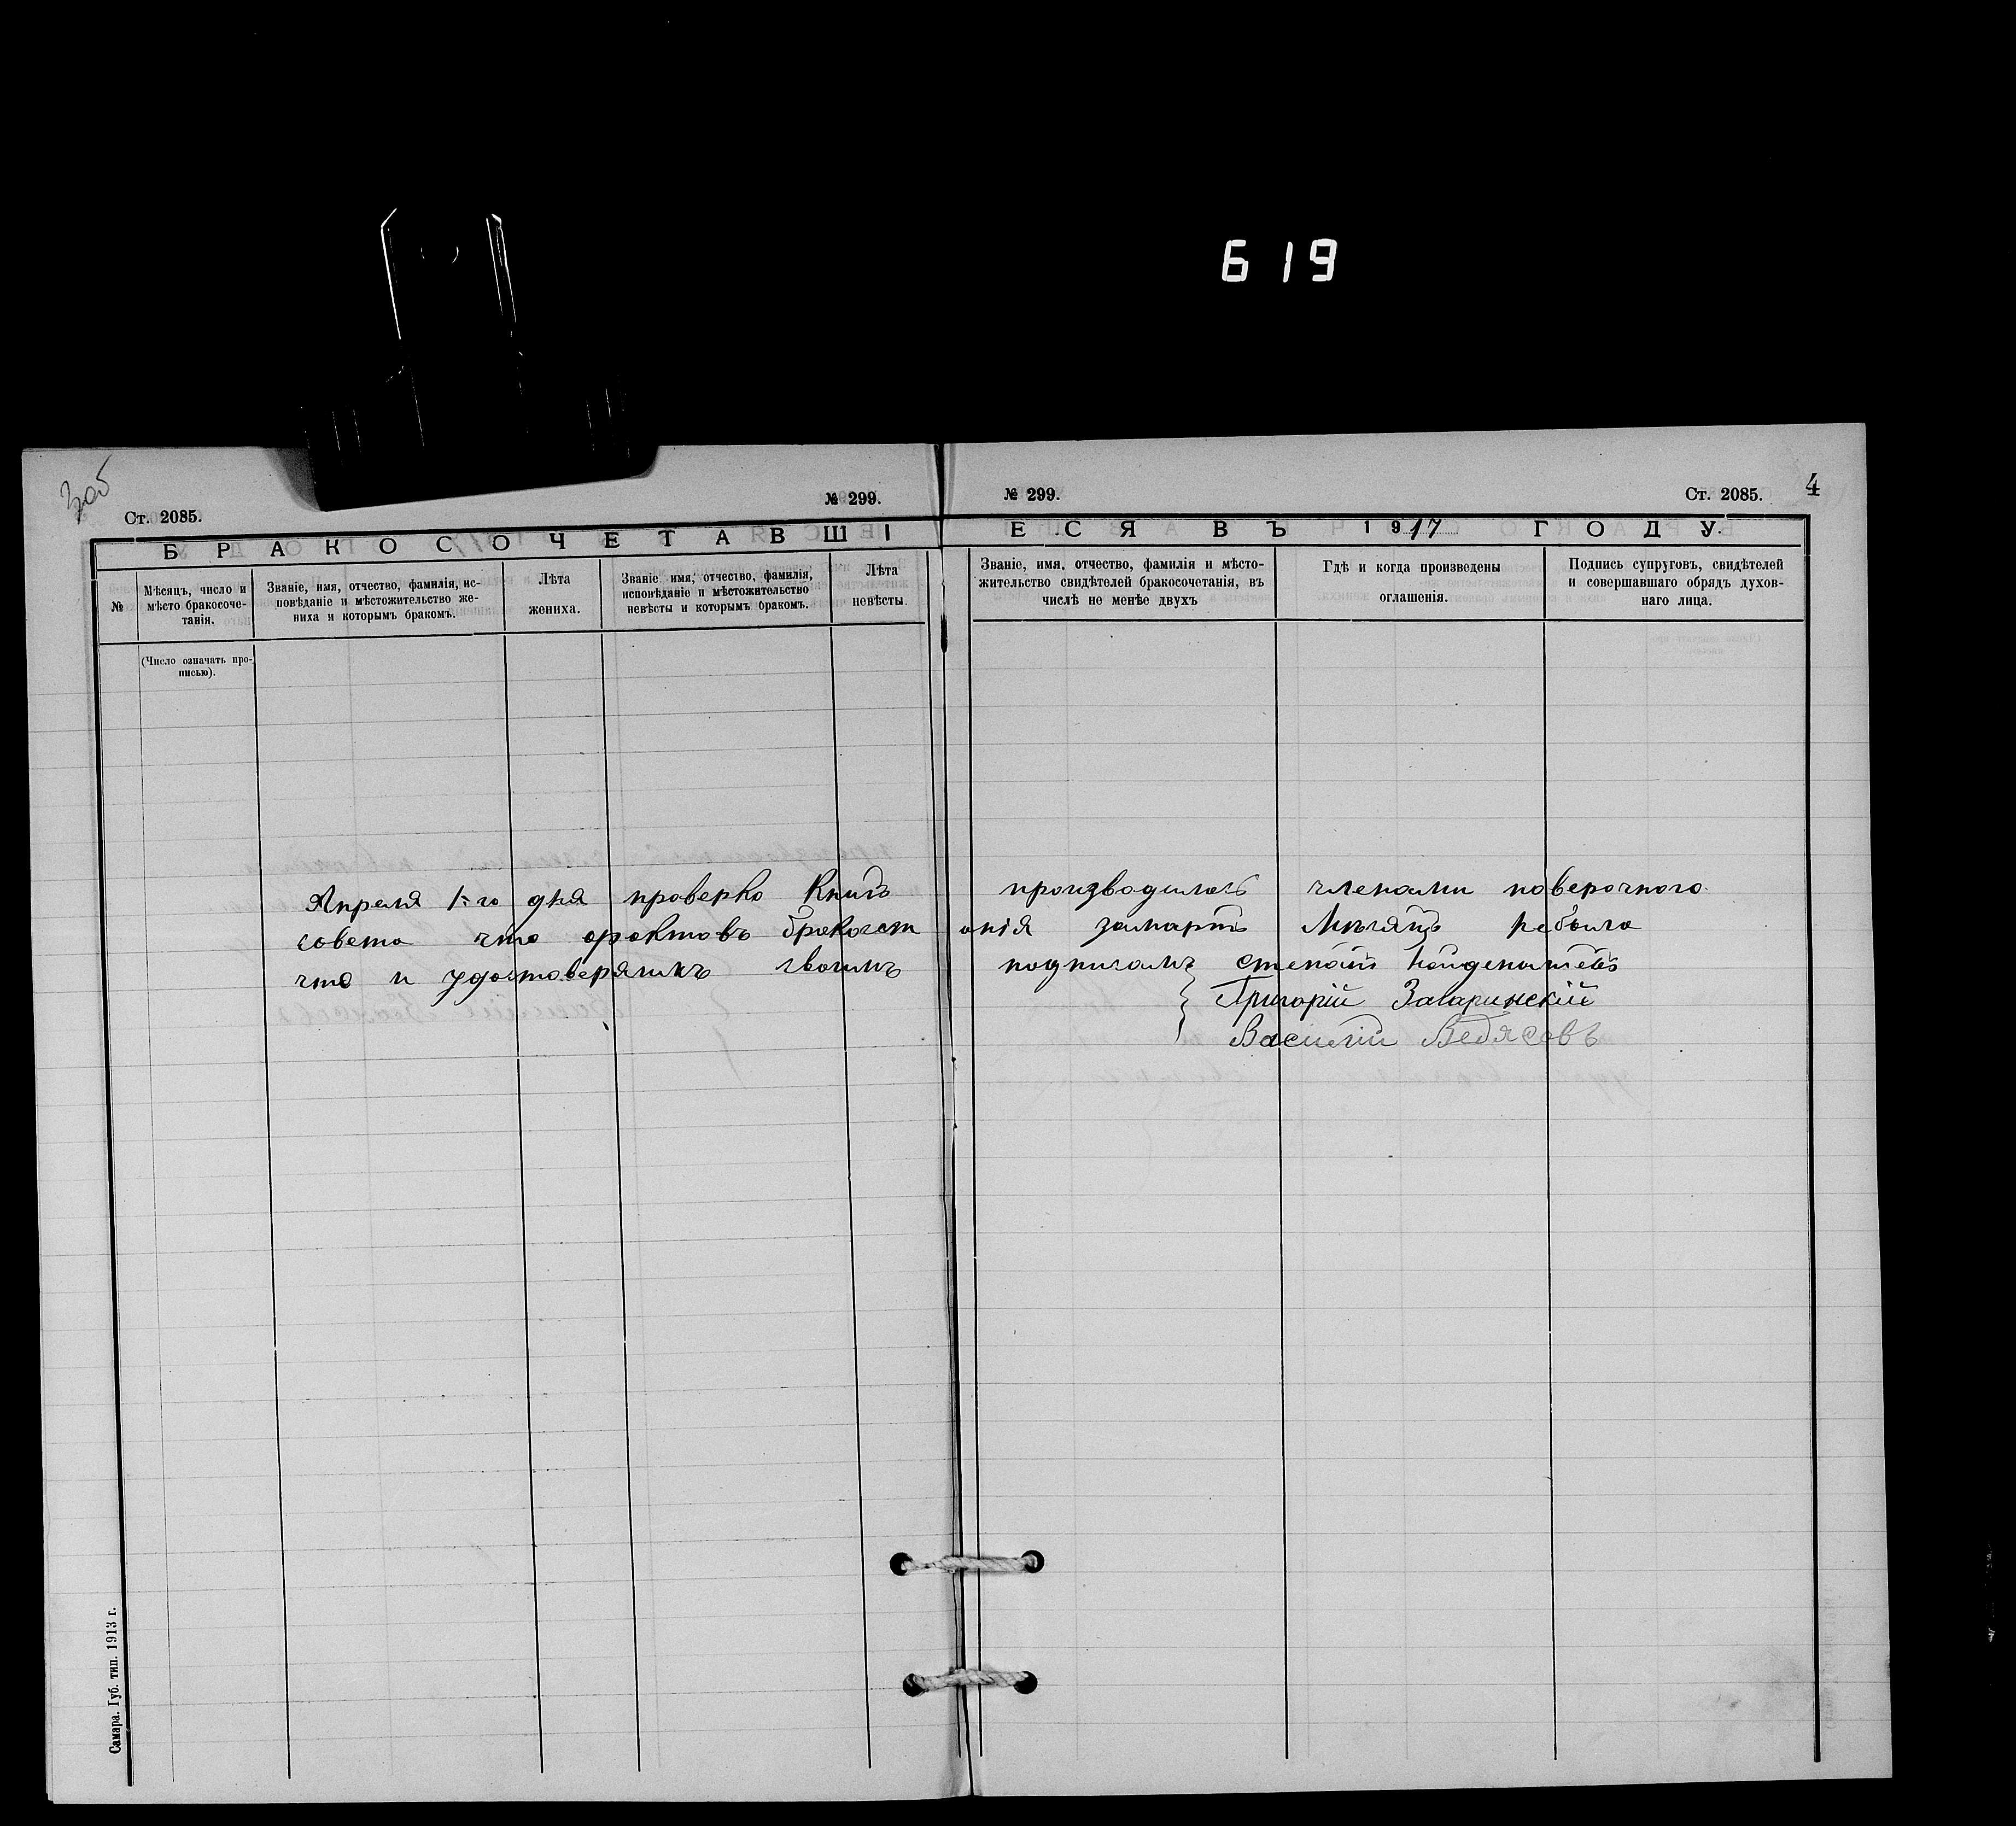 619
Ст. 2085.
№ 299.
№ 299.
Ст. 2085.
4
БРАКОСОЧЕТАВШІ
ЕСЯ ВЪ 1917 ГОДУ.
№
Мѣсяцъ, число и
мѣсто бракосоче-
танія.
Званіе, имя, отчество, фамилія, ис-
повѣданіе и мѣстожительство же-
ниха и которымъ бракомъ.
Лѣта
жениха.
Званіе, имя, отчество, фамилія,
исповѣданіе и мѣстожительство
невѣсты и которымъ бракомъ.
Лѣта
невѣсты.
Званіе, имя, отчество, фамилія и мѣсто-
жительство свидѣтелей бракосочетанія, въ
числѣ не менѣе двухъ
Гдѣ и когда произведены
оглашенія.
Подпись супруговъ, свидѣтелей
и совершавшаго обрядъ духов-
наго лица.
(Число означать про-
писью).
Апреля 1-го дня проверка Книгъ производилась членами поверочного
совета что фактовъ бракочет анія замартъ Мѣсяцъ небыло
что и удостоверяимъ своимъ подписамъ Степанъ
Григорій Загаринскій
Василій Ведясовъ
Самара. Губ. тип. 1913 г.